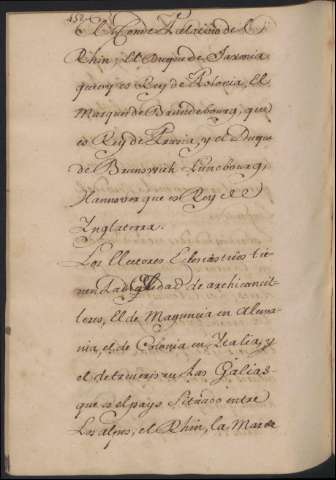 El Conde Palatino de el
Rhin, El Duque de Saxonia
que oy es Rey de Polonia, El
Marques de Brandebourg, que
es Rey de Prusia, y el Duque
de Brunswich-Lunebourg,
Hannover que es Rey de
Inglaterra.
Los Electores Eclesiasticos tie-
nen la dad de archicancil-
leres, El de Maguncia en Alema-
nia, el de Colonia en Italia, y
el de treveris en las Galias
que es el pays situado entre
Los alpes, el Rhin, la Mar